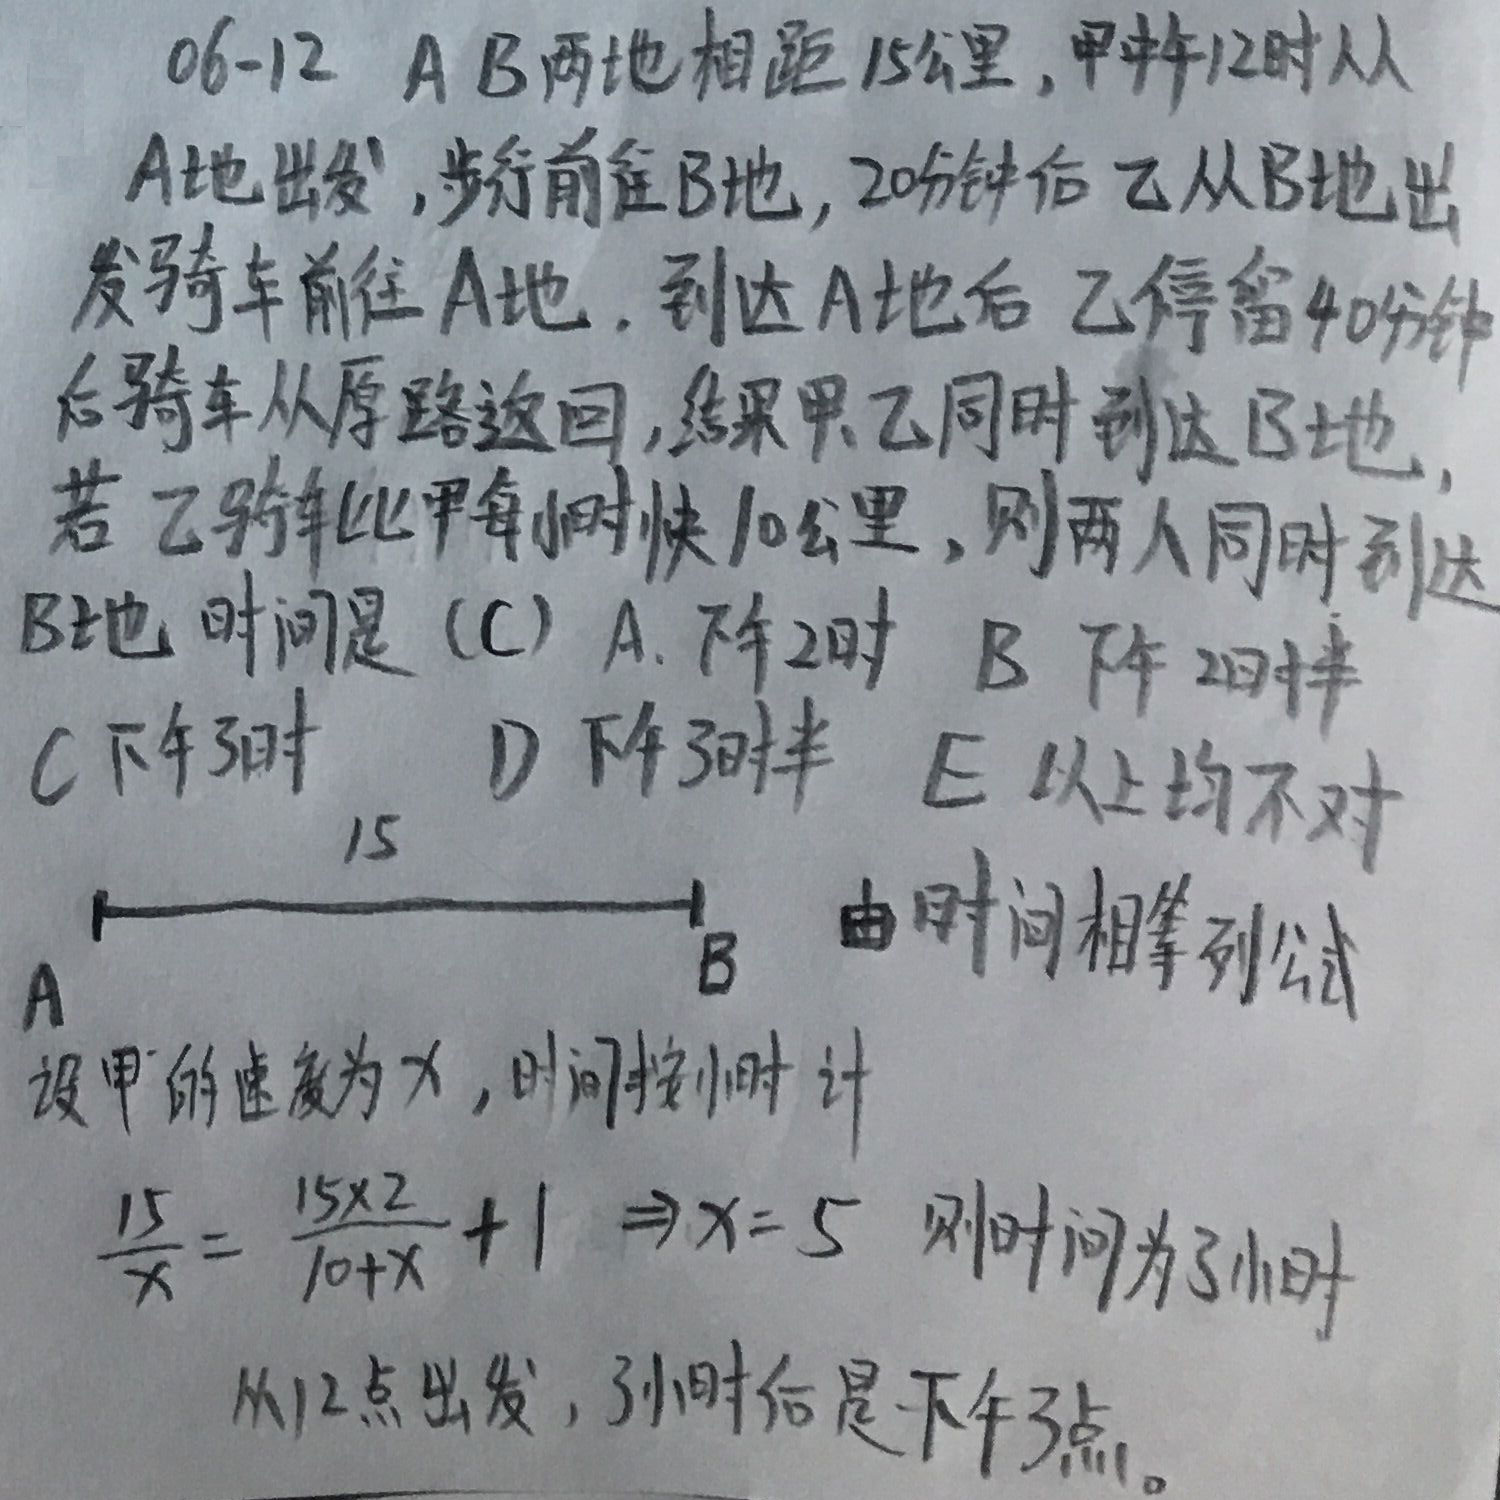 06-12 A B两地相距15公里,甲中午12时从
A地出发,步行前往B地,20分钟后 乙从B地出
发骑车前往A地.到达A地后 乙停留40分钟
后骑车从原路返回,结果甲、乙同时到达B地,
若 乙骑车比甲每小时快10公里,则两人同时到达
B地 时间是 (C) A. 下午2时 B 下午2时半
C 下午3时 D 下午3时半 E 以上均不对
15
A B 由时间相等列公式
设甲的速度为x,时间按小时计
15/x = 15×2/10+x + 1 ⇒ x = 5 则时间为3小时
从12点出发,3小时后是下午3点。